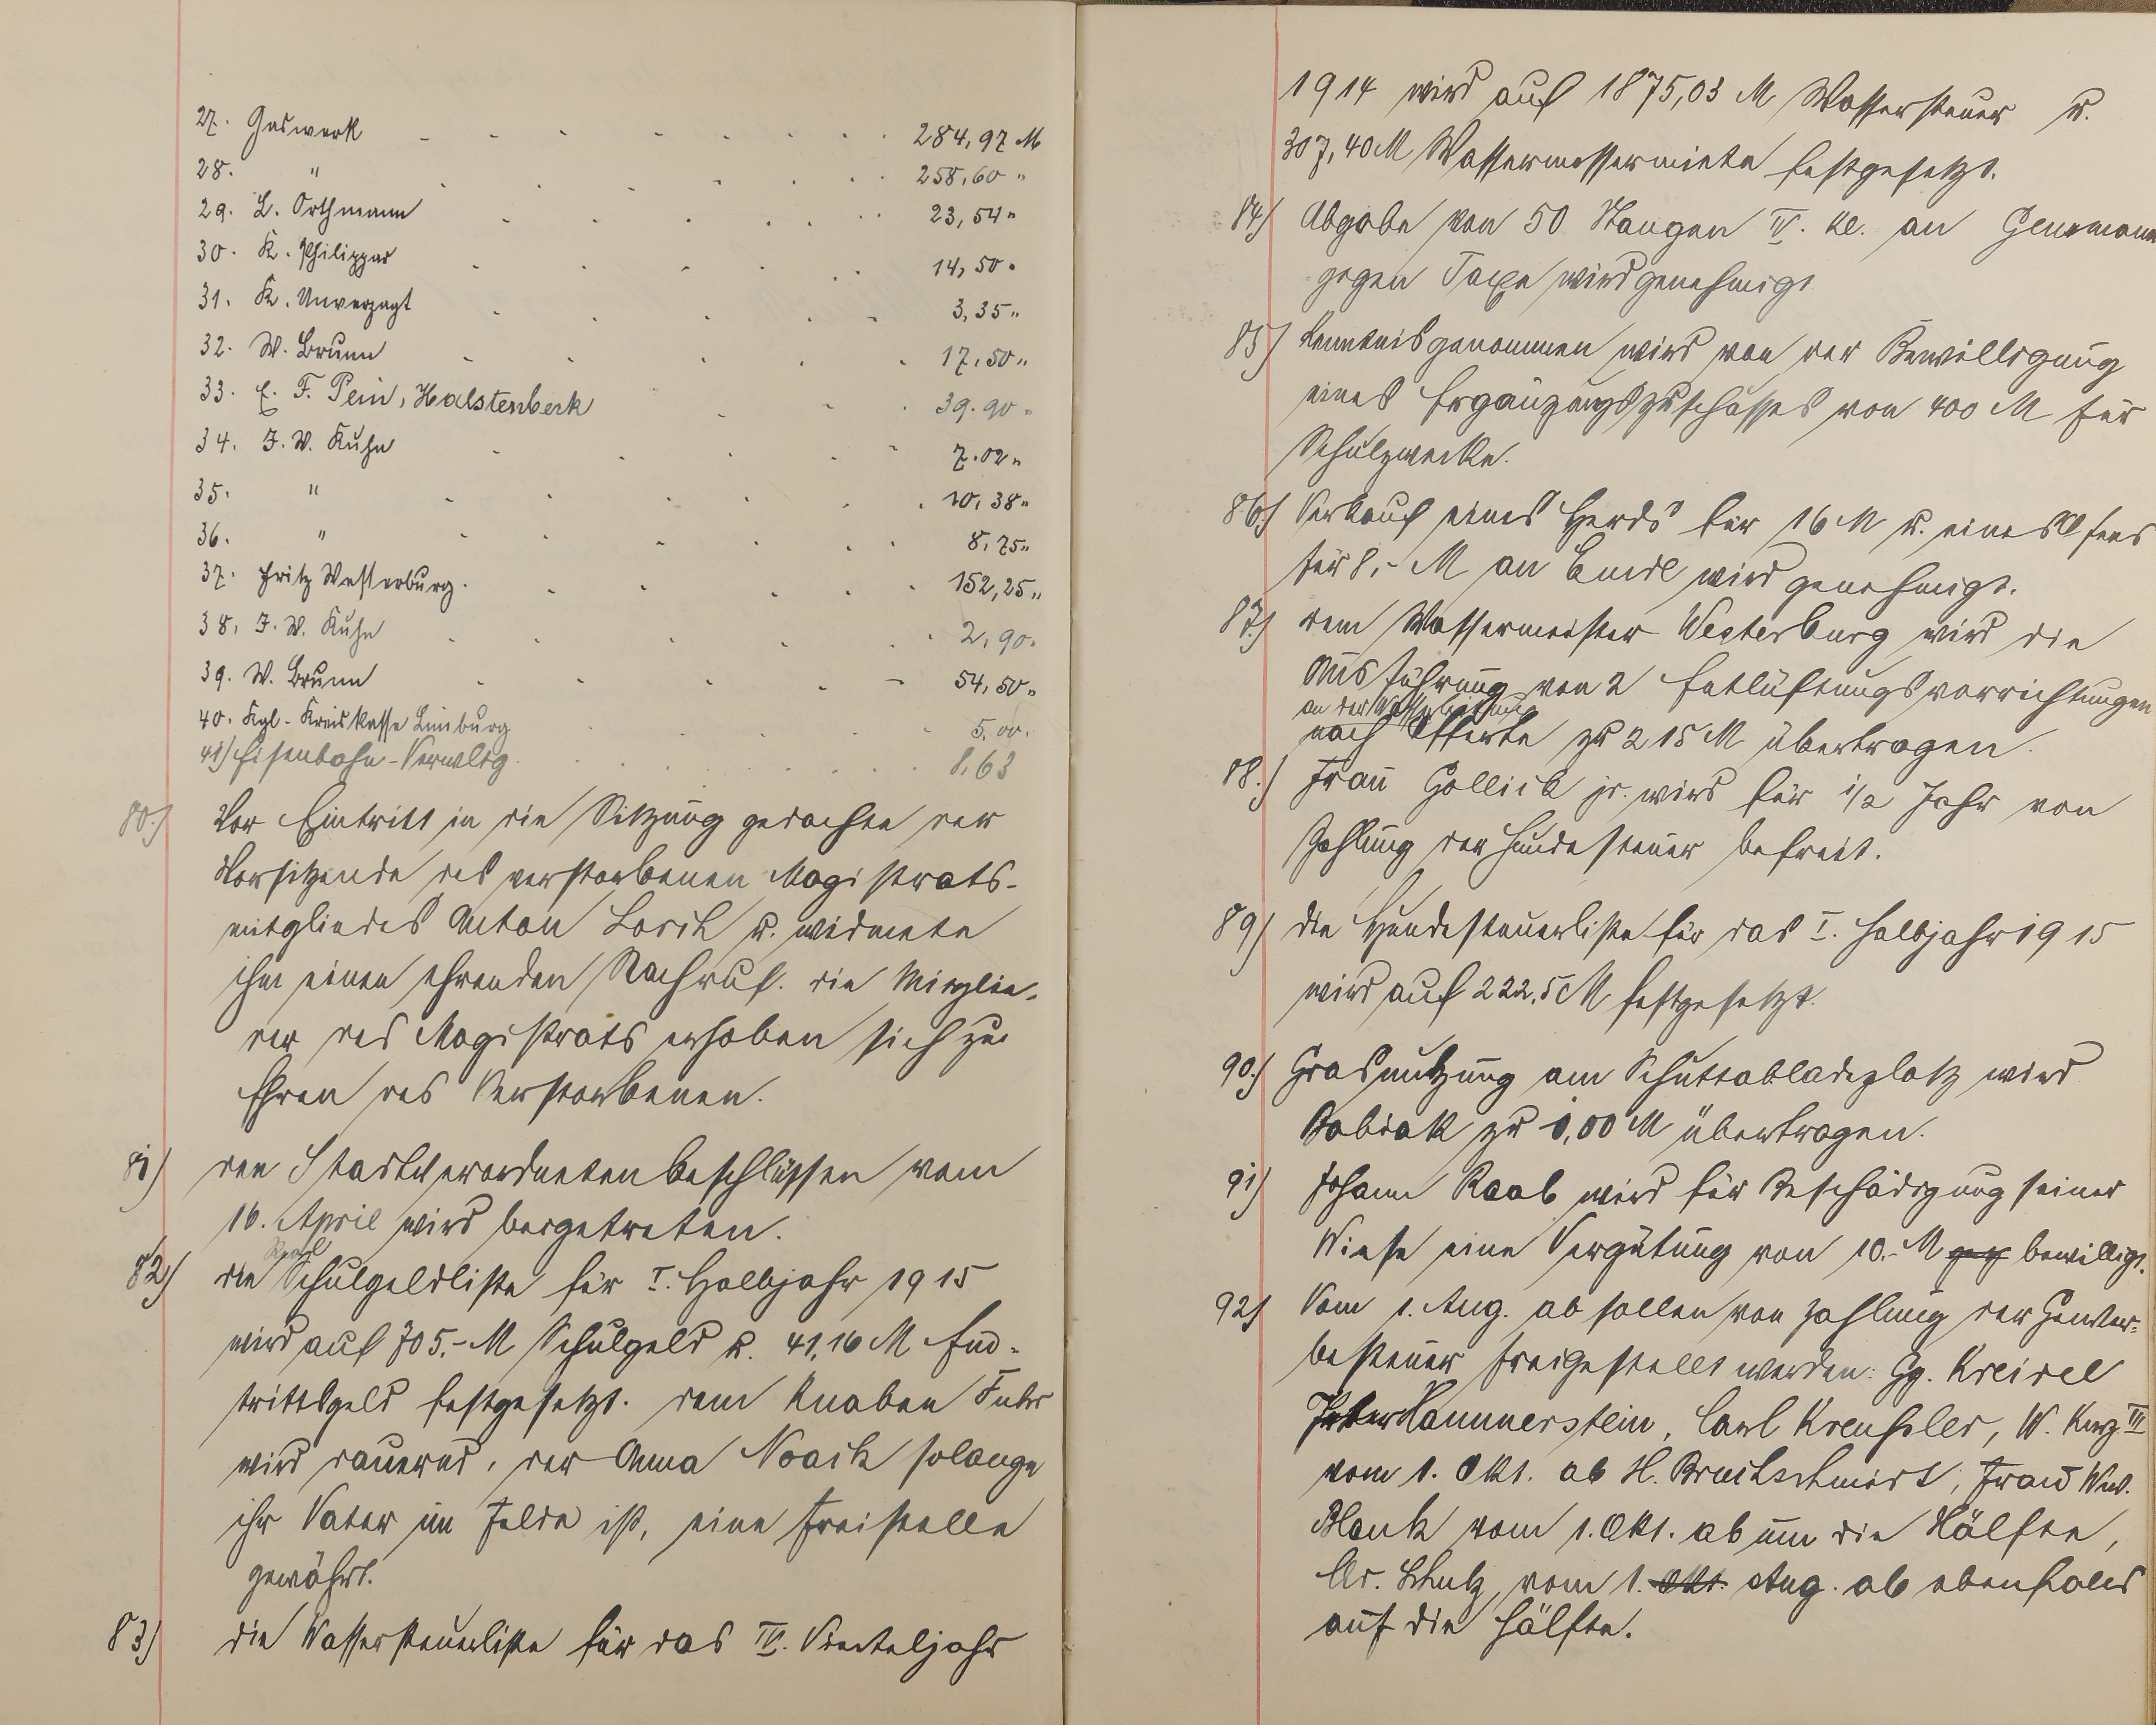 27. Gaswerk - - - - - - - - 284,97 M
28. " - - - - - - - 258,60 "
29. L. Orthmann - - - - - - - 23,54 "
30. K. Philippar - - - - - - 14,50 "
31. K. Unverzagt - - - - - 3,35 "
32. W. Brunn - - - - - 17,50 "
33. E. F. Pein, Halstenbeck - - - 39.90 "
34. J. W. Kuhn - - - - - 7.02 "
35. " - - - - - - 10,38 "
36. " - - - - - - 8,75 "
37. Fritz Westerburg. - - - - - 152,25 "
38. J. W. Kuhn - - - - - - 2,90 "
39. W. Brunn - - - - - 54,50 "
40. Kgl. Kreiskasse Limburg - - - - 5,00 "
41) Eisenbahn-Verwltg. - - - - - - 8,63
80.) Vor Eintritt in die Sitzung gedachte der
Vorsitzende des verstorbenen Magistrats-
mitgliedes Anton Lorch u. widmete
ihm einen ehrenden Nachruf. die Mitglie-
der des Magistrats erhoben sich zu
Ehren des Verstorbenen.
81) den Stadtverordnetenbeschlüssen vom
16. April wird beigetreten.
82) die Real Schulgeldliste für I. Halbjahr 1915
wird auf 705,- M Schulgeld u. 41,16 M Ein-
trittsgeld festgesetzt. dem Knaben Fuhr
wird dauernd, der Anna Noack solange
ihr Vater im Felde ist, eine Freistelle
gewährt.
83) die Wassersteuerliste für das IV. Vierteljahr
1914 wird auf 1875,03 M Wassersteuer u.
307,40 M Wassermessermiete festgesetzt.
84) Abgabe von 50 Stangen IV. Kl. an
gegen Taxe wird genehmigt
85) Kenntnis genommen wird von der Bewilligung
eines Ergänzungszuschusses von 400 M für
Schulzwecke.
86.) Verkauf eines Herds für 16 M u. eines Ofens
für 8,- M an wird genehmigt.
87.) dem Wassermeister Westerburg wird die
Ausführung von 2 Entlüftungsvorrichtungen
an der Wasserleitung
nach Offerte zu 215 M übertragen.
88.) Frau Gollick jr. wird für 1/2 Jahr von
Zahlung der Hundesteuer befreit.
89) die Hundesteuerliste für das I. Halbjahr 1915
wird auf 222,5 M festgesetzt.
90.) Grasnutzung am Schuttabladeplatz wird
zu M übertragen.
91) Johann Raab wird für Beschädigung seiner
Wiese eine Vergütung von 10.- M bewilligt.
92) Vom 1. Aug. ab sollen von Zahlung der Gewer-
besteuer freigestellt werden: Gg. Kreidel
Peter Hammerstein, Carl Kreuseler, W. Kurz III
vom 1. Okt. ab H. Bruchschmidt, Frau Ww.
Blank vom 1. Okt. ab um die Hälfte,
Chr. Schulz, vom 1. Okt. Aug. ab ebenfalls
auf die Hälfte.